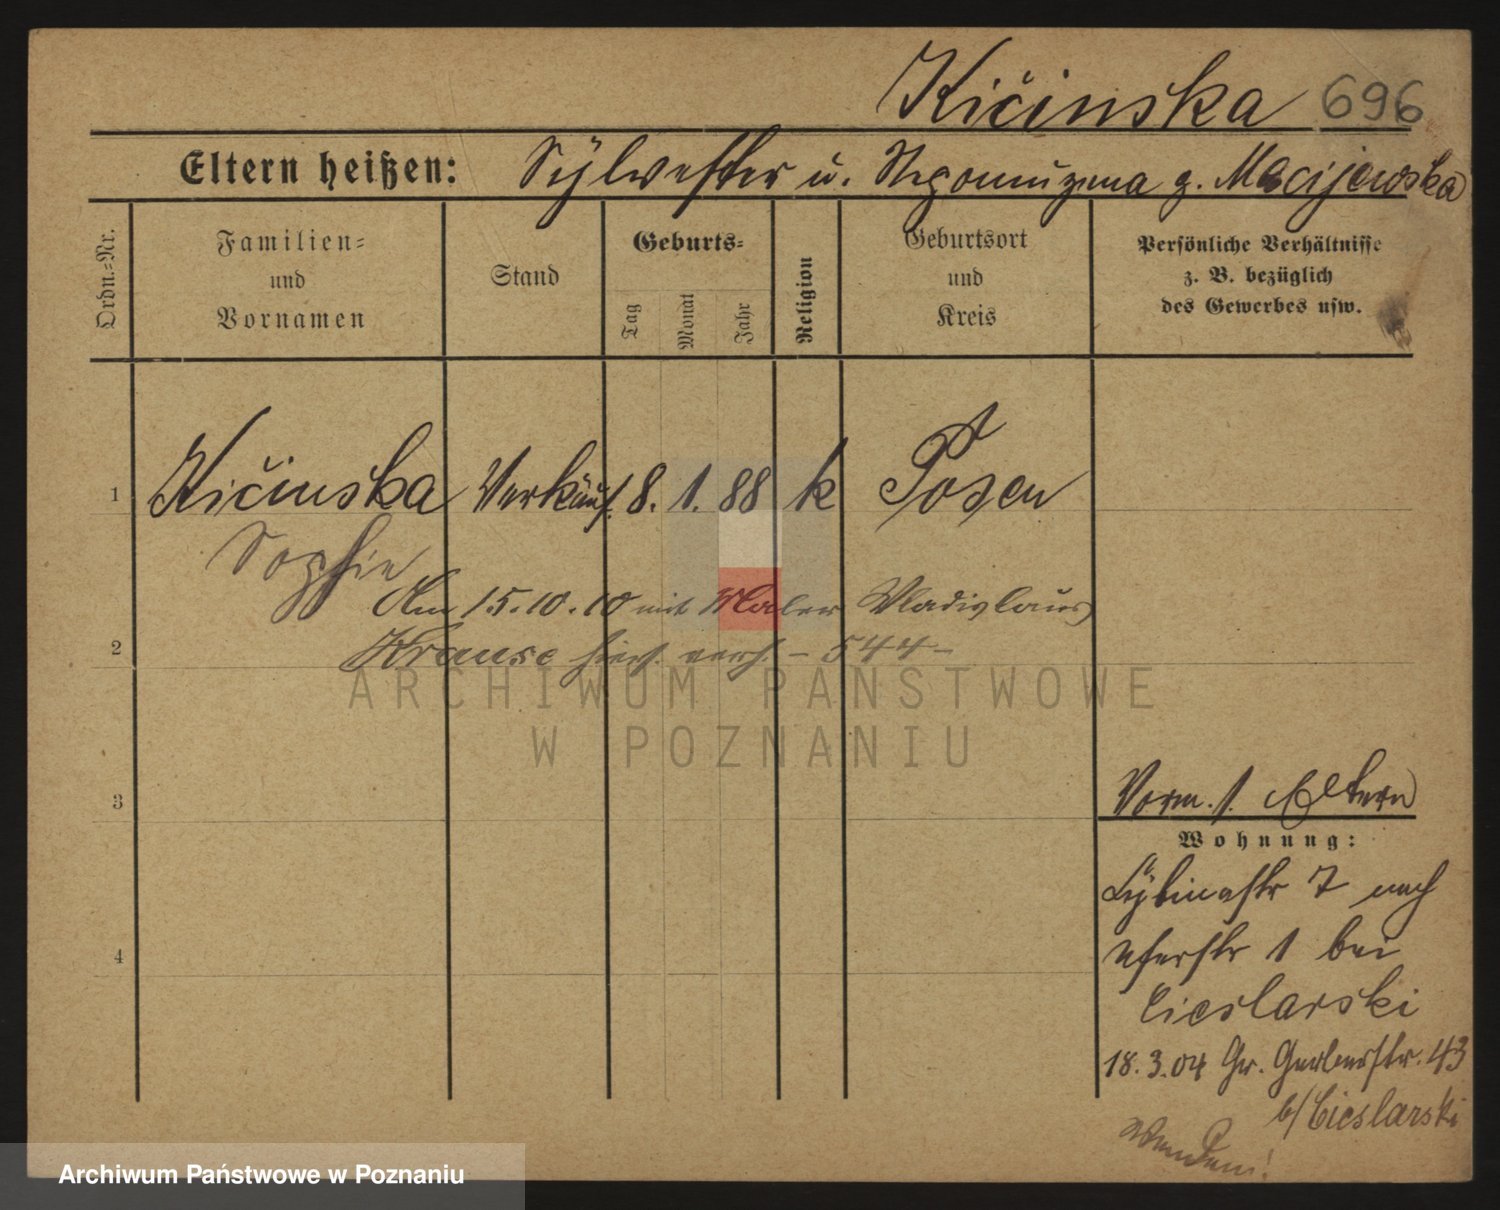 Kičinska 696
Eltern heißen: Sylvester u. Nepomuzena g. Macijewska
Ordn.=Nr.
Familien=
und
Vornamen
Stand
Geburts=
Tag
Monat
Jahr
Religion
Geburtsort
und
Kreis
Persönliche Verhältnisse
z. B. bezüglich
des Gewerbes usw.
1 Kičinska Verkäuf. 8. 1. 88 k Posen
Sophie
Am 15.10.10 mit Maler Wladislaus
2 Krause hier verh. – 544 –
3
Vorm. s. Eltern
Wohnung:
Cybinastr 7 nach
4
Uferstr 1 bei
Cieslarski
18.3.04 Gr. Gerberstr. 43
b/Cieslarski
Wenden!
ARCHIWUM PAŃSTWOWE
W POZNANIU
Archiwum Państwowe w Poznaniu